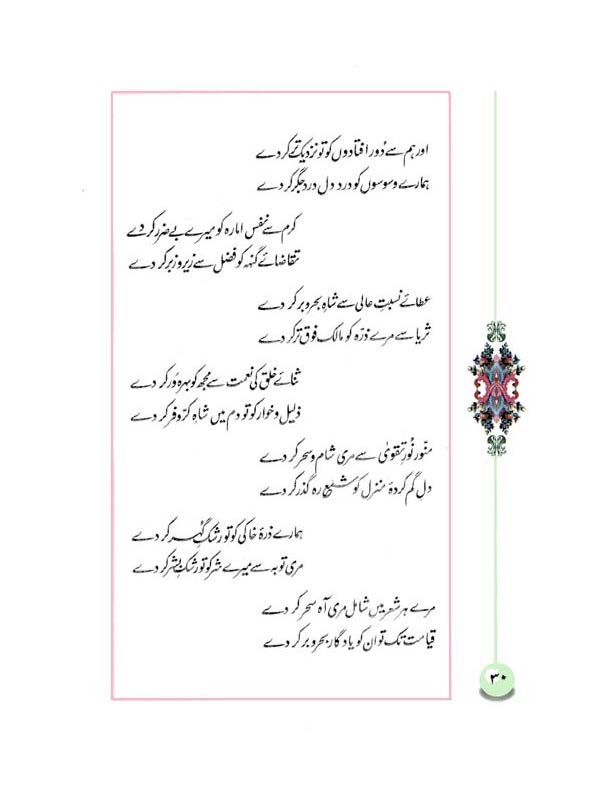 اور ہم سے دُور افتادوں کو تو نزدیک تر کر دے
ہمارے وسوسوں کو درد دل درد جگر کر دے
کرم سے نفس امارہ کو میرے بے ضرر کر دے
تقاضائے گنہہ کو فضل سے زیر و زبر کر دے
عطائے نسبت عالی سے شاہِ بحر و بر کر دے
ثریا سے مرے ذرّہ کو مالک فوق تر کر دے
ثنائے خلق کی نعمت سے مجھ کو بہرہ وَر کر دے
ذلیل و خوار کو تو دم میں شاہِ کرّ و فر کر دے
منوّر نُورِ تقویٰ سے مری شام و سحر کر دے
دلِ گم کردۂ منزل کو شمعِ رہ گذر کر دے
ہمارے ذرۂ خاکی کو تو رشکِ گُہر کر دے
مری توبہ سے میرے شر کو تو رشکِ بشر کر دے
مرے ہر شعر میں شامل مری آہ سحر کر دے
قیامت تک تو ان کو یادگار بحر و بر کر دے
۳۰